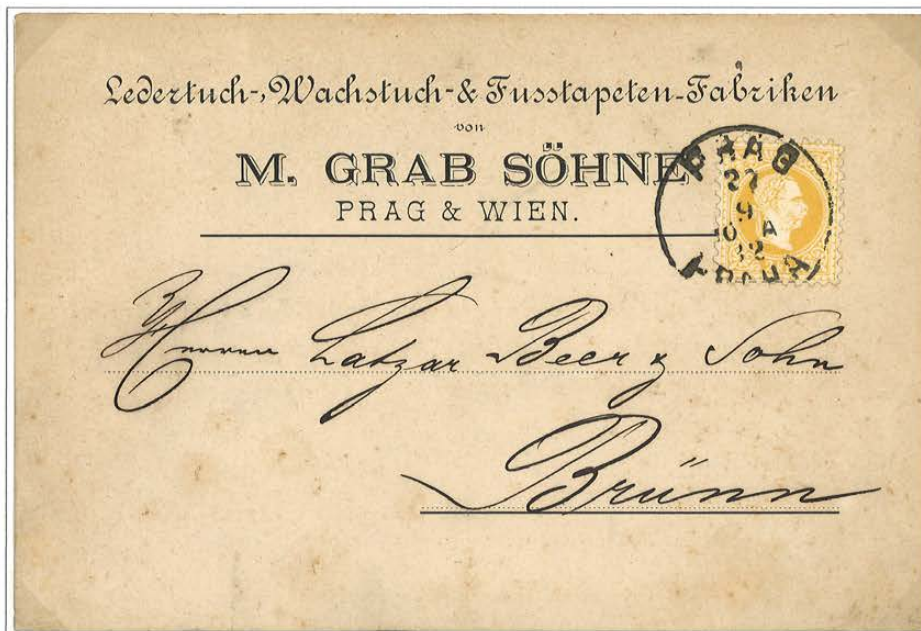 Ledertuch-, Wachstuch- & Fusstapeten-Fabriken
von
M. GRAB SÖHNE
PRAG & WIEN.
PRAG
27
9
82
PRAHA
Herren Latzar Beer & Sohn
Brünn